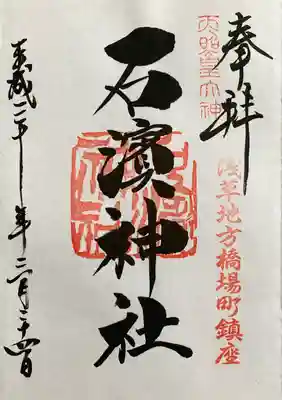 奉拝
天照皇大神
浅草地方橋場町鎮座
石濱神社
平成二十一年三月二十四日